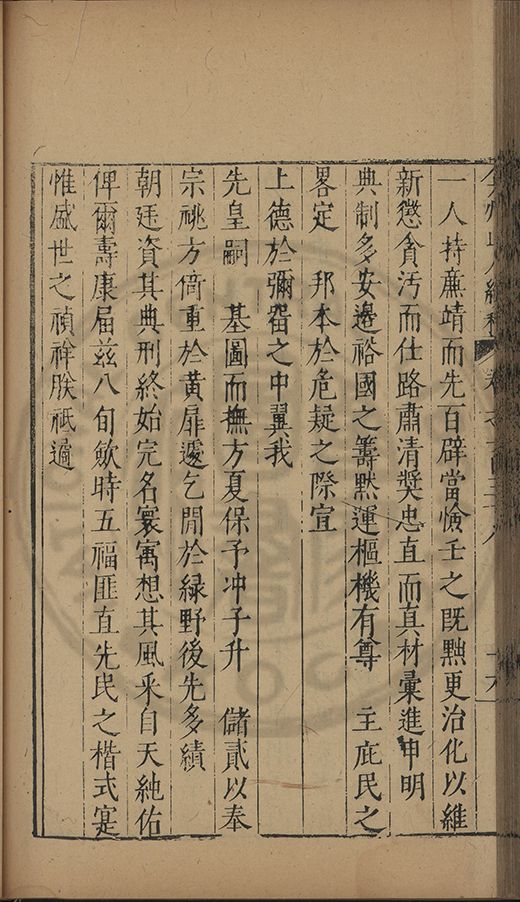 一人持廉靖而先百辟當憸壬之既黜更治化以維
新懲貪汚而仕路肅清奬忠直而真材彙進申明
典制多安邊裕國之籌黙運樞機有尊　主庇民之
畧定　邦本於危疑之際宣
上德於彌畱之中翼我
先皇嗣　基圖而撫方夏保予冲子升　儲貳以奉
宗祧方倚重於黄扉遽乞閒於緑野後先多績
朝廷資其典刑終始完名寰㝢想其風采自天純佑
俾爾壽康屆兹八旬歛時五福匪直先民之楷式寔
惟盛世之禎祥朕祗遹